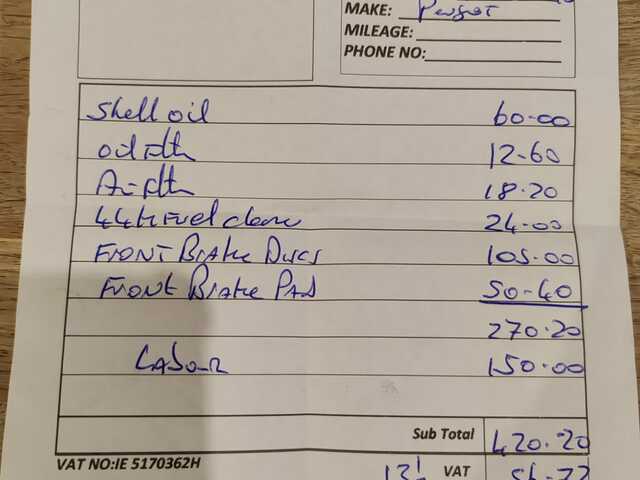 MAKE: Peugeot
MILEAGE:
PHONE NO:
Shell oil 60.00
oil filth 12-60
Air filth 18.20
44k Fuel clean 24.00
FRONT BRAKE DISCS 105.00
FRONT BRAKE PAD 50-40
270.20
LABOUR 150.00
Sub Total 420.20
VAT NO:IE 5170362H
VAT 56-72